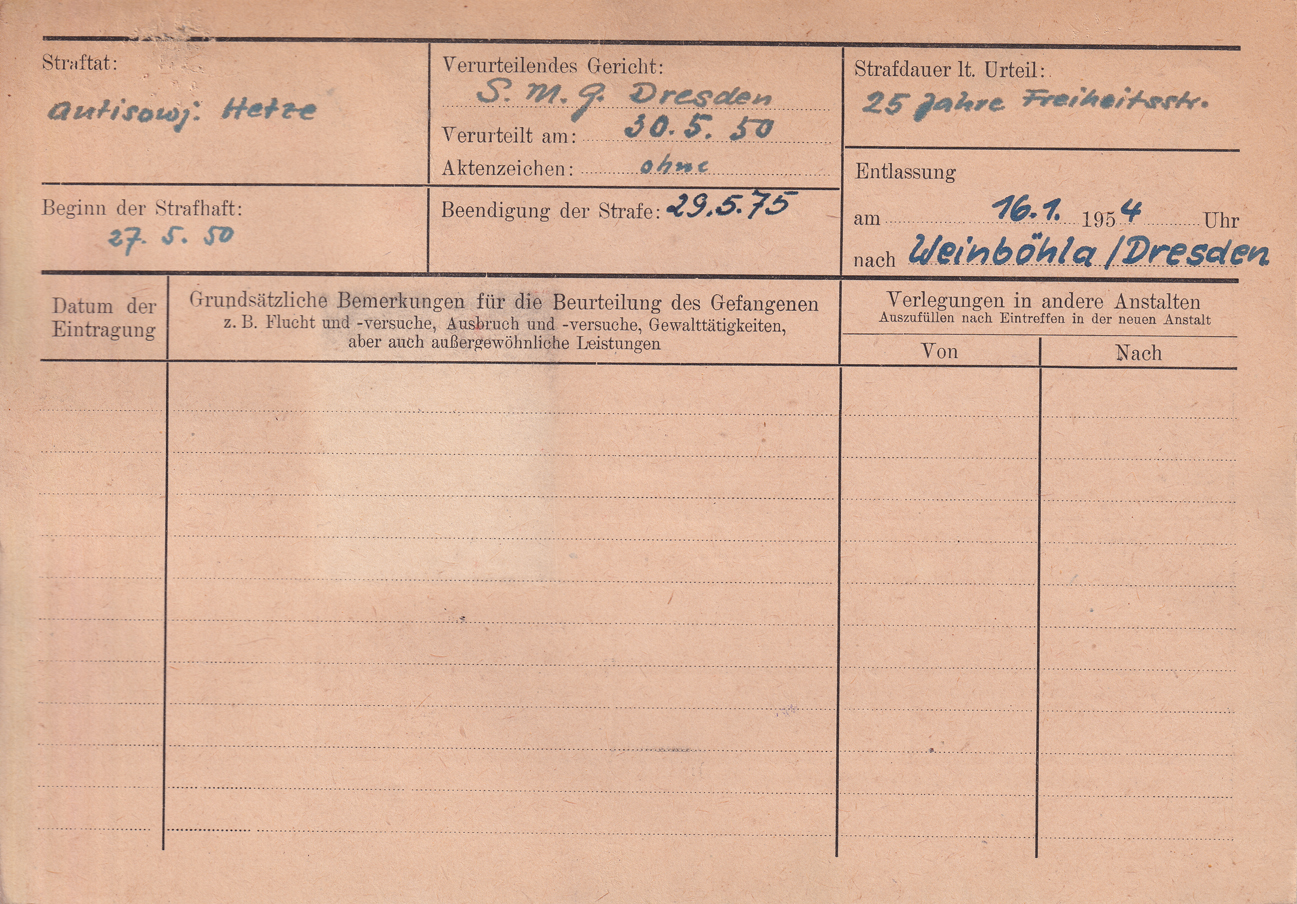 Straftat:
antisowj. Hetze
Verurteilendes Gericht:
S. M. G. Dresden
Verurteilt am: 30. 5. 50
Aktenzeichen: ohne
Strafdauer lt. Urteil:
25 Jahre Freiheitsstr.
Beginn der Strafhaft:
27. 5. 50
Beendigung der Strafe: 29.5.75
Entlassung
am 16.1. 1954 Uhr
nach Weinböhla / Dresden
Datum der
Eintragung
Grundsätzliche Bemerkungen für die Beurteilung des Gefangenen
z. B. Flucht und -versuche, Ausbruch und -versuche, Gewalttätigkeiten,
aber auch außergewöhnliche Leistungen
Verlegungen in andere Anstalten
Auszufüllen nach Eintreffen in der neuen Anstalt
Von
Nach